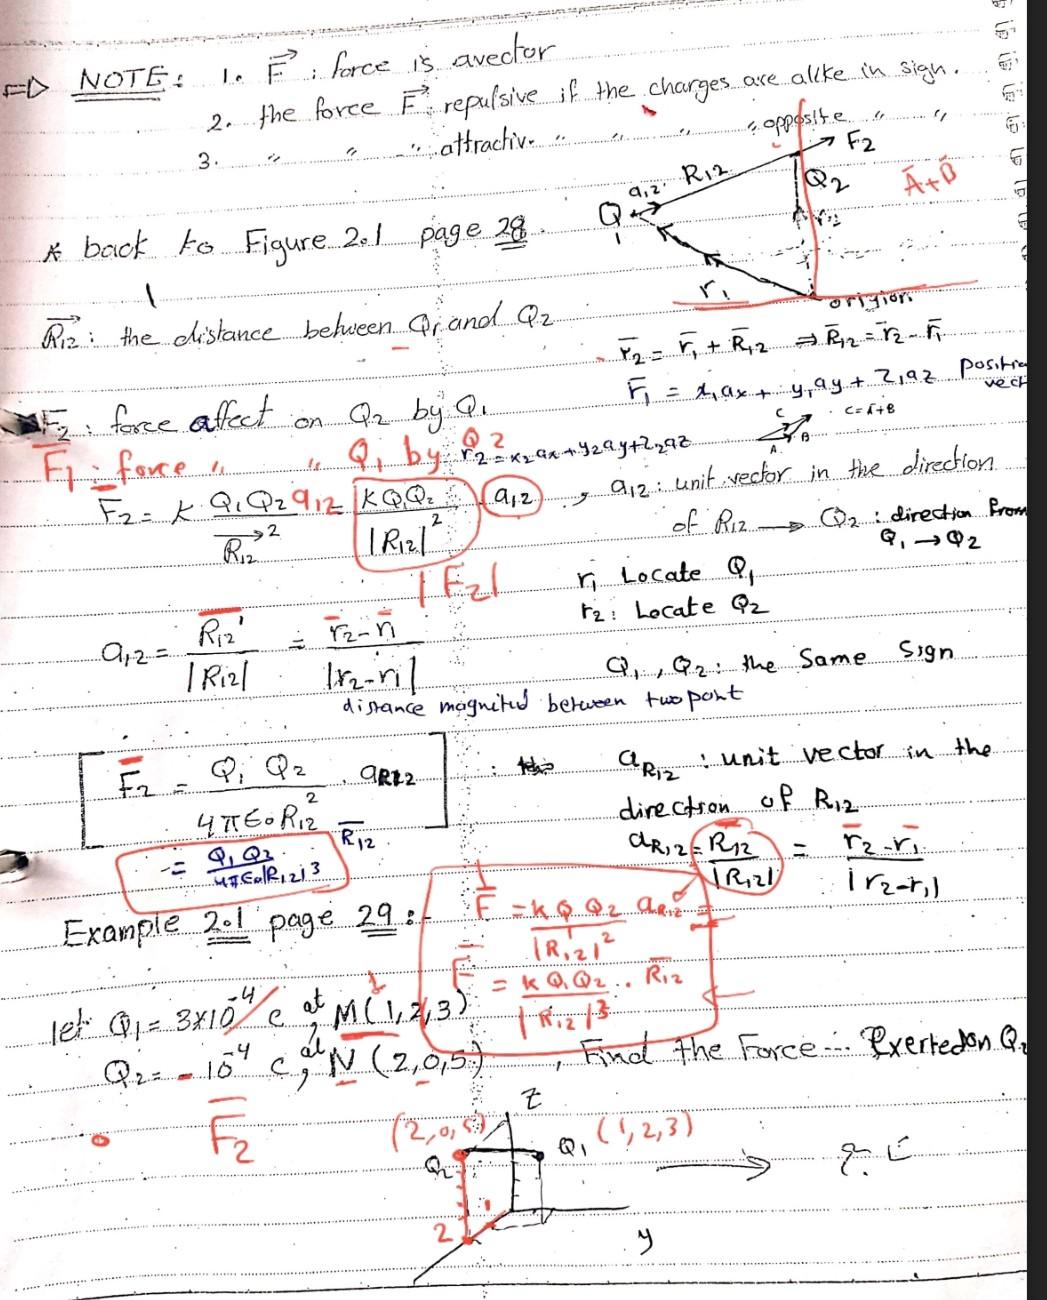 ⇒ NOTE: 1. F⃗ : force is avector
2. the force F⃗: repulsive if the charges are alike in sign.
3. " " " attractiv. " " " " opposite " "
F2
a12 R12
Q1
Q2
Ā+B̄
r2
r1
origion
* back to Figure 2.1 page 28.
R⃗12: the distance between Q1 and Q2
r̄2 = r̄1 + R̄12 ⇒ R̄12 = r̄2 - r̄1
r̄1 = x1ax + y1ay + z1az
F2: force affect on Q2 by Q1
C = A+B
C
A
B
F̄1: force " " Q1 by Q2
r2 = x2ax + y2ay + z2az
F̄2 = K Q1Q2 a12 / R⃗12² = K Q1Q2 / |R12|² a12 , a12: unit vector in the direction
of R12 → Q2: direction from
Q1 → Q2
|F2|
r1 Locate Q1
r2: Locate Q2
a12 = R̄12 / |R12| = r̄2 - r̄1 / |r2 - r1|
Q1, Q2: the Same Sign
distance magnitud between two point
F̄2 = Q1 Q2 / 4πεoR12² . aR12
aR12: unit vector in the
direction of R12
= Q1Q2 / 4πεo|R12|³ R̄12
aR12 = R̄12 / |R12| = r̄2 - r̄1 / |r2 - r1|
Example 2.1 page 29:-
F̄ = K Q1 Q2 / |R12|² aR12 =
F̄ = K Q1Q2 / |R12|³ . R̄12
let Q1 = 3x10⁻⁴ c at M(1,2,3)
Q2 = -10⁻⁴ c, at N(2,0,5), Find the Force... Exerted on Q2
F̄2
z
(2,0,5)
(1,2,3)
Q2
Q1
1
2
y